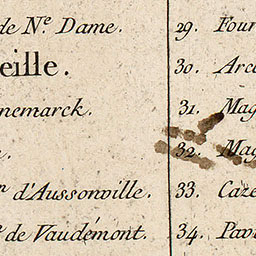 de N.e Dame.
eille.
nemarck.
n d'Aussonville.
de Vaudémont.
29. Four
30. Arc
31. Mag
32. Mag
33. Caze
34. Pav